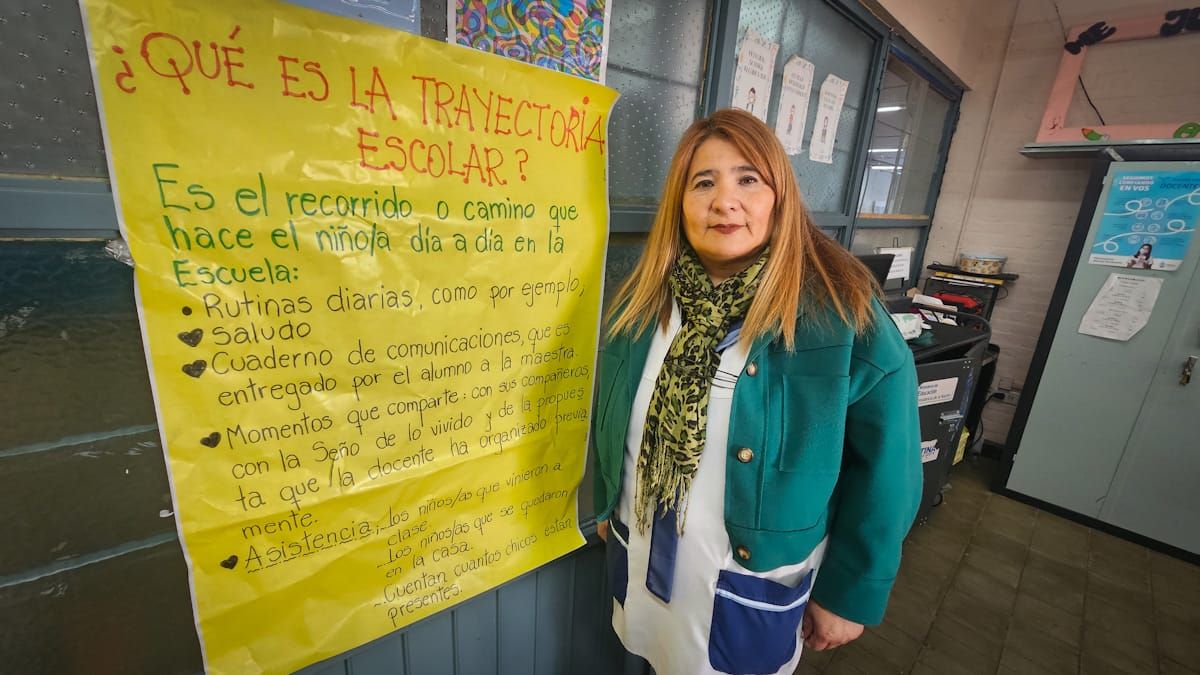 ¿QUÉ ES LA TRAYECTORIA
ESCOLAR?
Es el recorrido o camino que
hace el niño/a día a día en la
Escuela:
• Rutinas diarias, como por ejemplo;
♥ Saludo
♥ Cuaderno de comunicaciones, que es
entregado por el alumno a la maestra.
♥ Momentos que comparte: con sus compañeros,
con la Seño de lo vivido y de la propues
ta que /la docente ha organizado previa
mente.
♥ Asistencia; los niños/as que vinieron a
clase.
Los niños/as que se quedaron
en la casa.
Cuentan cuantos chicos están
presentes.
SEGUIMOS
CONFIANDO
EN VOS
DOCENTE
Educación